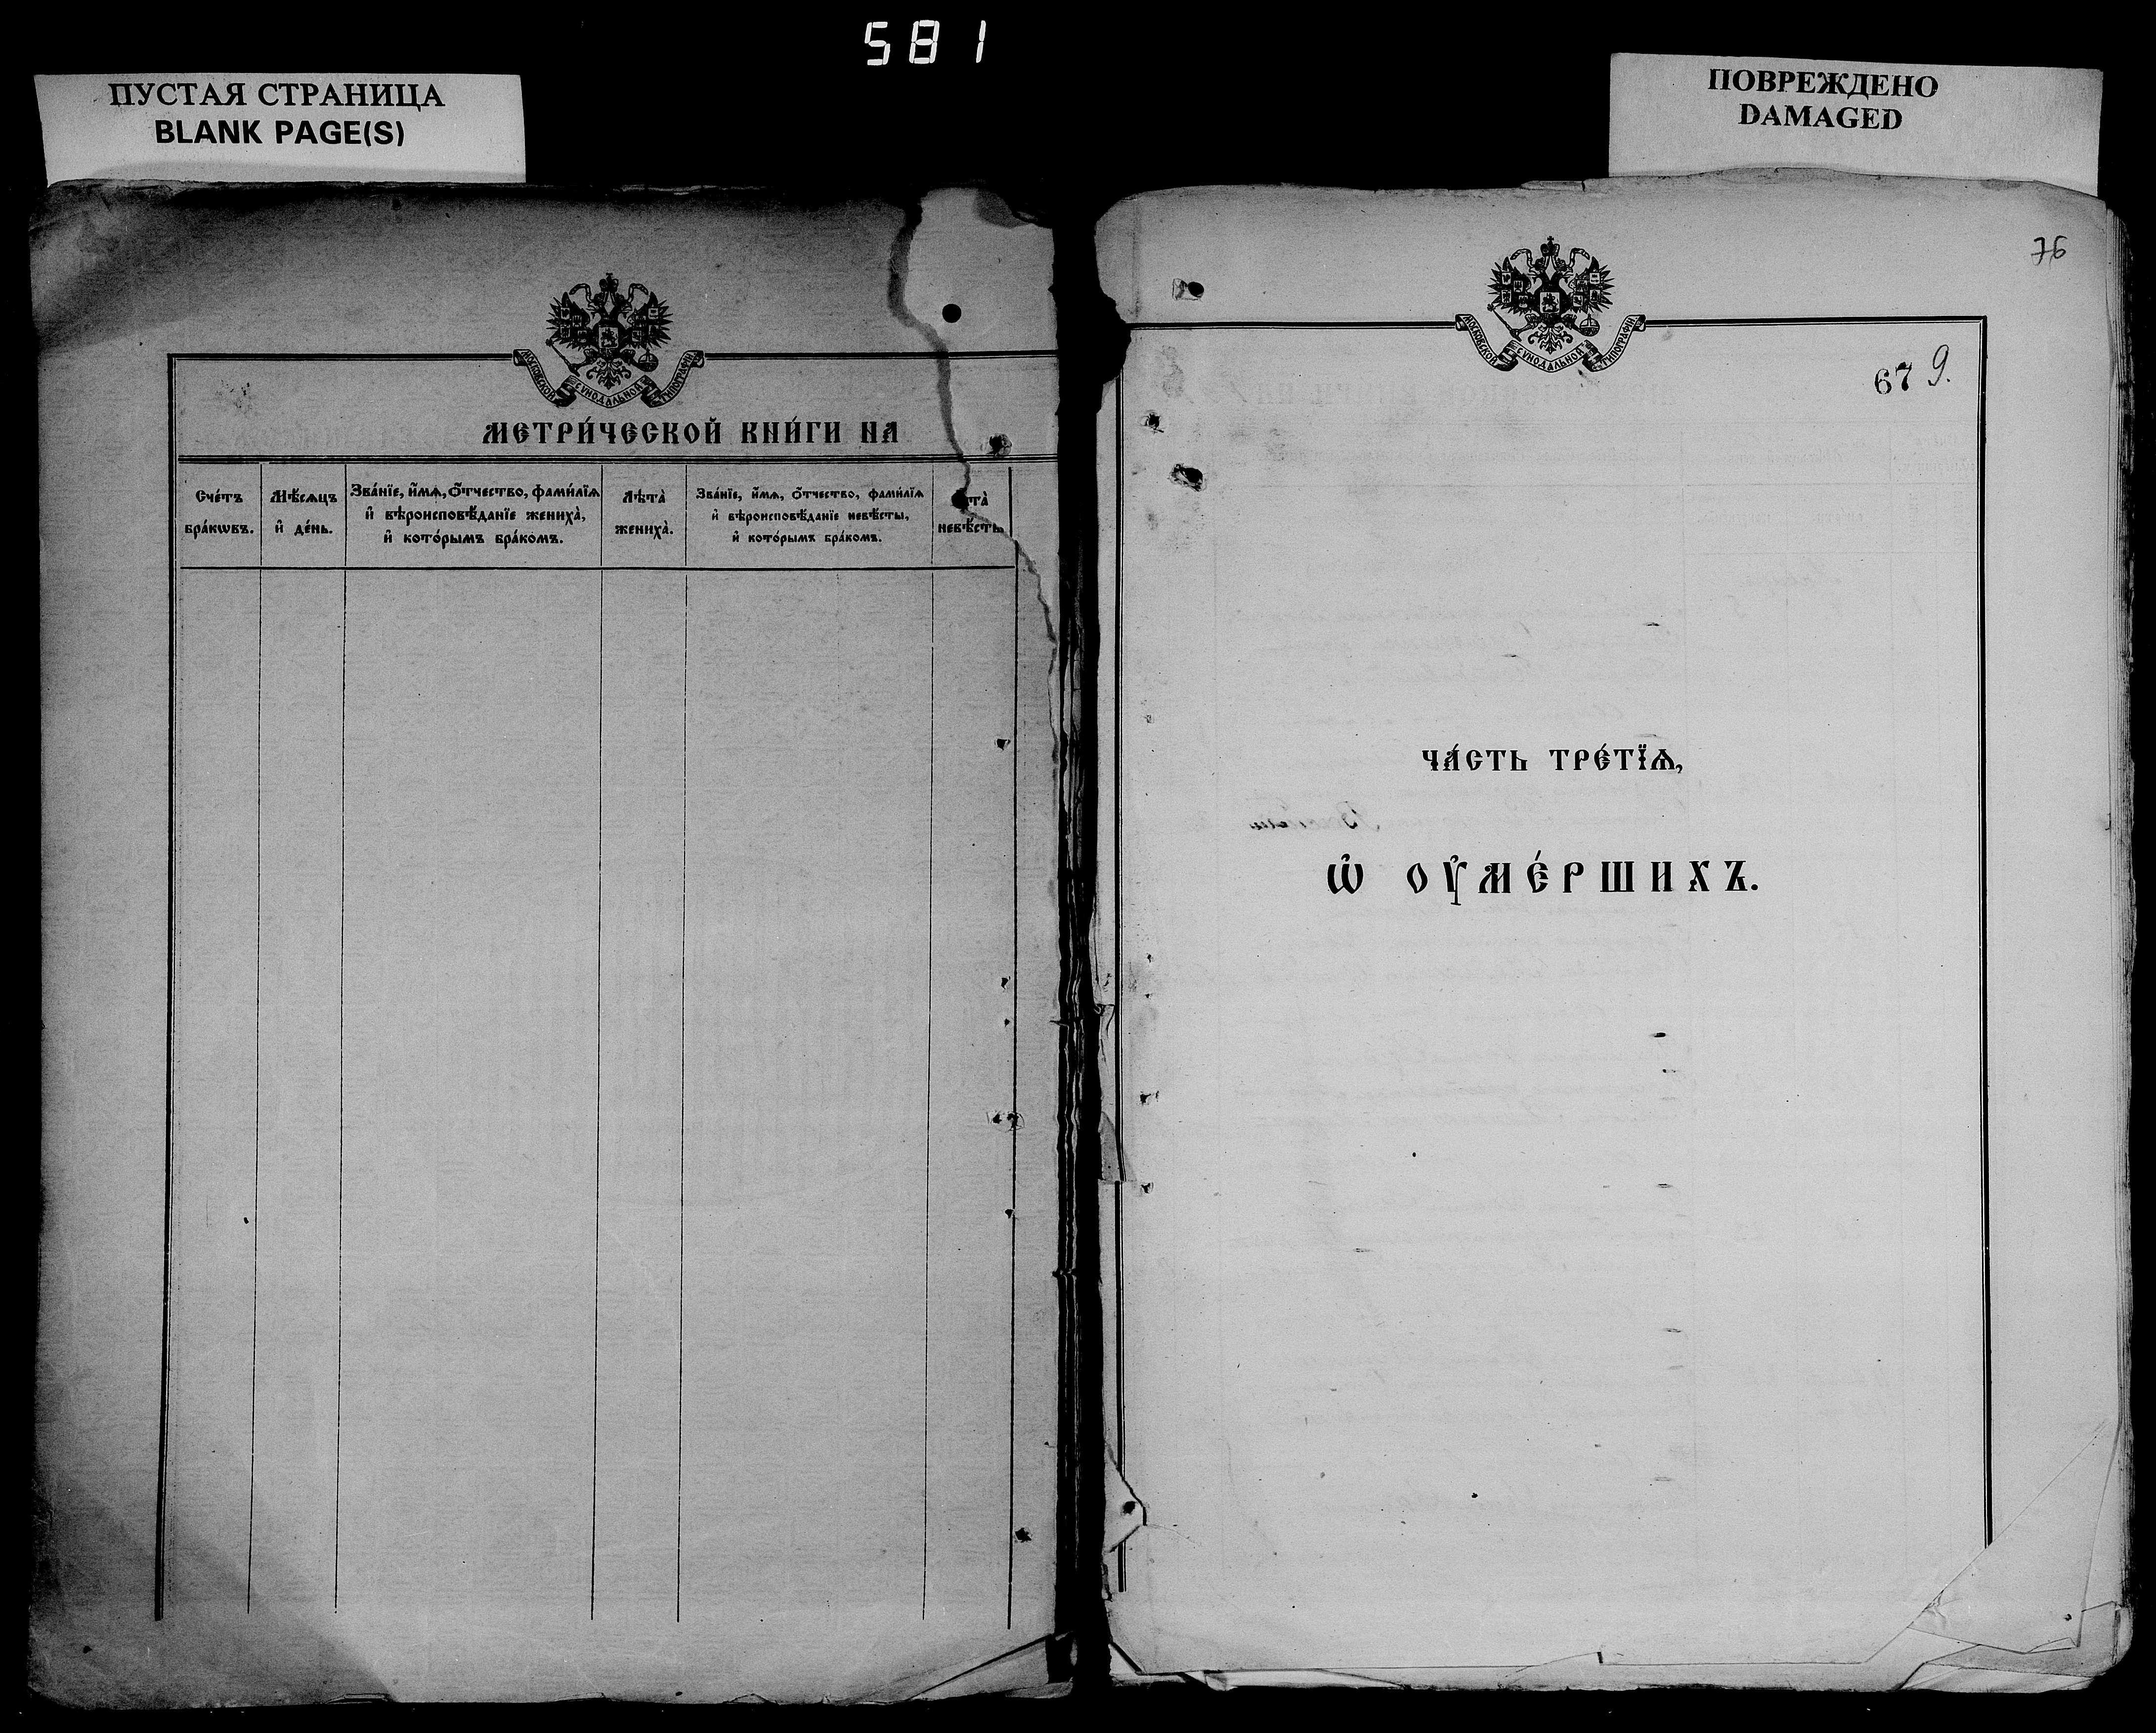 581
ПУСТАЯ СТРАНИЦА
BLANK PAGE(S)
МОСКОВСКОЙ СѴНОДАЛЬНОЙ ТИПОГРАФІИ
МЕТРИ́ЧЕСКОЙ КНИ́ГИ НА
Сче́тъ бра́кѡвъ.
Мѣ́сѧцъ и҆ де́нь.
Зва́нїе, и҆́мѧ, ѻ҆́тчество, фамилїѧ
и҆ вѣроисповѣ́данїе жениха̀,
и҆ кото́рымъ бра́комъ.
Лѣта̀ жениха̀.
Зва́нїе, и҆́мѧ, ѻ҆́тчество, фамилїѧ
и҆ вѣроисповѣ́данїе невѣ́сты,
и҆ кото́рымъ бра́комъ.
та̀ невѣ́сты
ПОВРЕЖДЕНО
DAMAGED
76
МОСКОВСКОЙ СѴНОДАЛЬНОЙ ТИПОГРАФІИ
67 9.
ЧА́СТЬ ТРЕ́ТЇѦ,
Ѡ҆ ОУ҆МЕ́РШИХЪ.